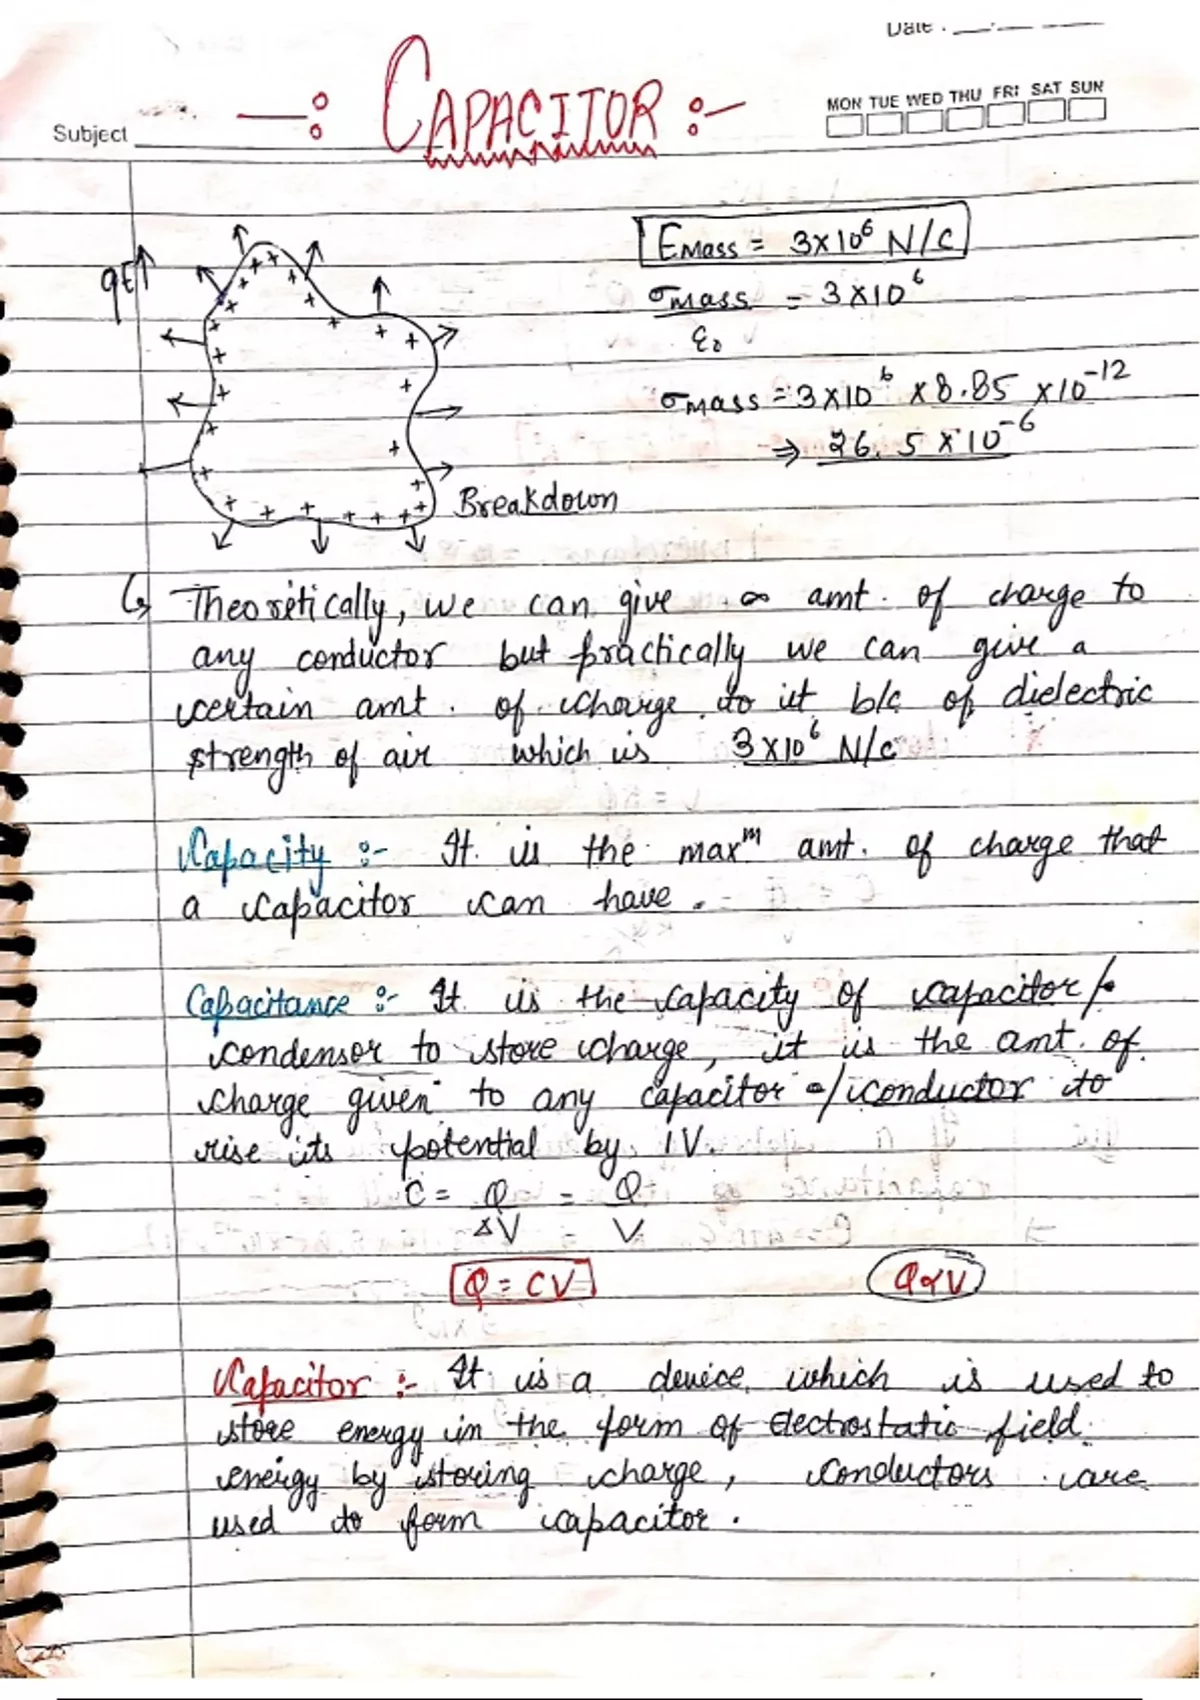 Date.
—: CAPACITOR :-
MON TUE WED THU FRI SAT SUN
Subject
qE
EMass = 3×10⁶ N/C
σMass = 3×10⁶
ε₀
σMass = 3×10⁶ × 8.85 × 10⁻¹²
⇒ 26.5 × 10⁻⁶
Breakdown
↳ Theoretically, we can give ∞ amt. of charge to
any conductor but practically we can give a
certain amt. of charge to it b/c of dielectric
strength of air which is 3×10⁶ N/C
Capacity :- It is the maxᵐ amt. of charge that
a capacitor can have.
Capacitance :- It is the capacity of capacitor/
condensor to store charge, it is the amt. of
charge given to any capacitor /conductor to
rise its potential by 1V.
C = Q = Q
ΔV V
Q = CV Q∝V
Capacitor :- It is a device which is used to
store energy in the form of Electrostatic field
energy by storing charge, conductors are
used to form capacitor.